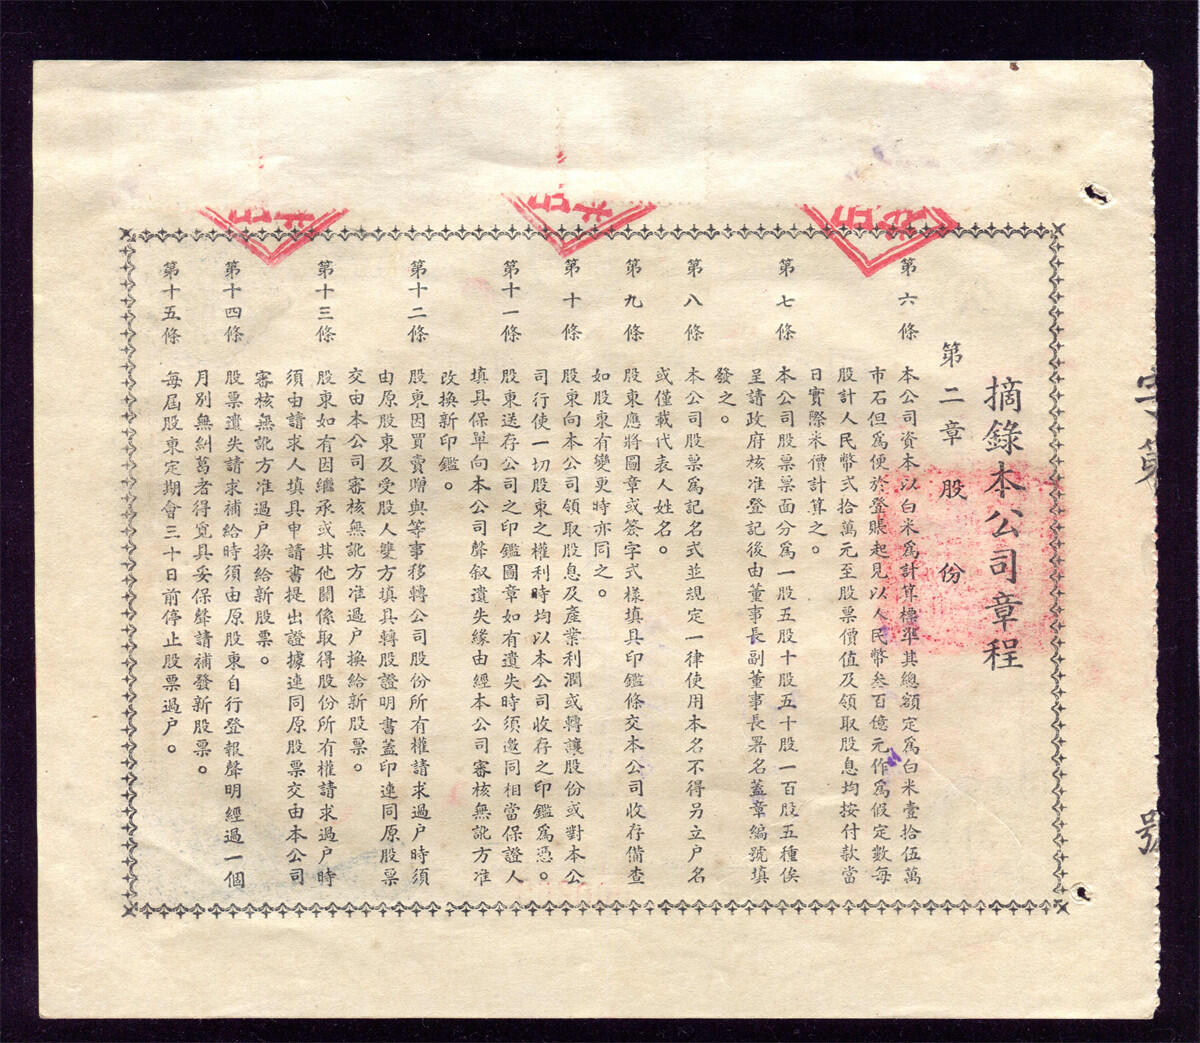 字第
號
摘錄本公司章程
第二章 股份
第六條 本公司資本以白米爲計算標準其總額定爲白米壹拾伍萬
市石但爲便於登賬起見以人民幣叁百億元作爲假定數每
股計人民幣弍拾萬元至股票價值及領取股息均按付款當
日實際米價計算之。
第七條 本公司股票票面分爲一股五股十股五十股一百股五種俟
呈請政府核准登記後由董事長副董事長署名蓋章編號填
發之。
第八條 本公司股票爲記名式並規定一律使用本名不得另立户名
或僅載代表人姓名。
第九條 股東應將圖章或簽字式樣填具印鑑條交本公司收存備查
如股東有變更時亦同之。
第十條 股東向本公司領取股息及產業利潤或轉讓股份或對本公
司行使一切股東之權利時均以本公司收存之印鑑爲憑。
第十一條 股東送存公司之印鑑圖章如有遺失時須邀同相當保證人
填具保單向本公司聲叙遺失緣由經本公司審核無訛方准
改換新印鑑。
第十二條 股東因買賣贈與等事移轉公司股份所有權請求過户時須
由原股東及受股人雙方填具轉股證明書蓋印連同原股票
交由本公司審核無訛方准過户換給新股票。
第十三條 股東如有因繼承或其他關係取得股份所有權請求過户時
須由請求人填具申請書提出證據連同原股票交由本公司
審核無訛方准過户換給新股票。
第十四條 股票遺失請求補給時須由原股東自行登報聲明經過一個
月別無糾葛者得覓具妥保聲請補發新股票。
第十五條 每屆股東定期會三十日前停止股票過户。